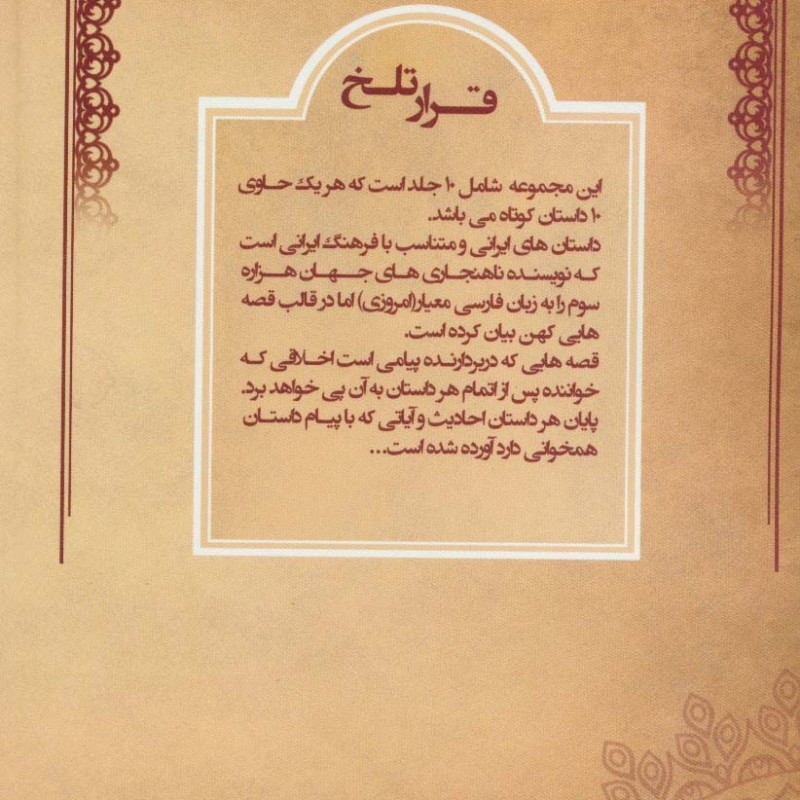 قرار تلخ
این مجموعه شامل ۱۰ جلد است که هر یک حاوی
۱۰ داستان کوتاه می باشد.
داستان های ایرانی و متناسب با فرهنگ ایرانی است
که نویسنده ناهنجاری های جهان هزاره
سوم را به زبان فارسی معیار(امروزی) اما در قالب قصه
هایی کهن بیان کرده است.
قصه هایی که دربردارنده پیامی است اخلاقی که
خواننده پس از اتمام هر داستان به آن پی خواهد برد.
پایان هر داستان احادیث و آیاتی که با پیام داستان
همخوانی دارد آورده شده است...